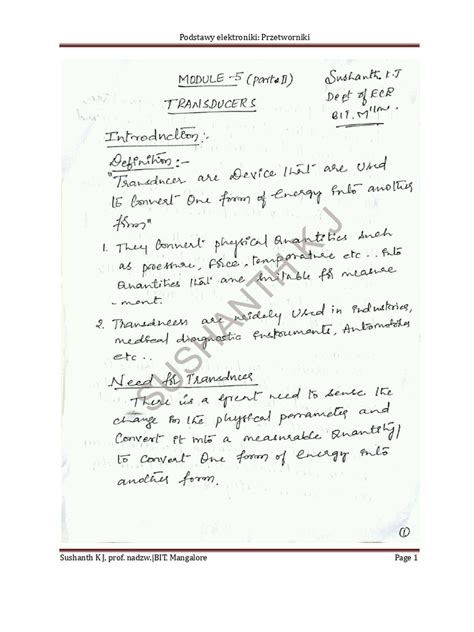 Podstawy elektroniki: Przetworniki
MODULE -5 (part-II)
Sushanth. K.J
Dept of ECE
BIT. M'lore.
TRANSDUCERS
Introduction :-
Definition :-
"Transducer are Device that are used
to convert One form of Energy into another
form"
1. They Convert physical Quantities such
as pressure, Force, temperature etc .. into
Quantities that are suitable for measure
-ment.
2. Transducers are widely Used in industries,
medical diagnostic instruments, Automobiles
etc . .
Need for Transducer
There is a great need to sense the
change in the physical parameter and
Convert it into a measurable Quantity/
to Convert One form of Energy into
another form.
SUSHANTH K J
1
Sushanth K J, prof. nadzw.|BIT. Mangalore
Page 1